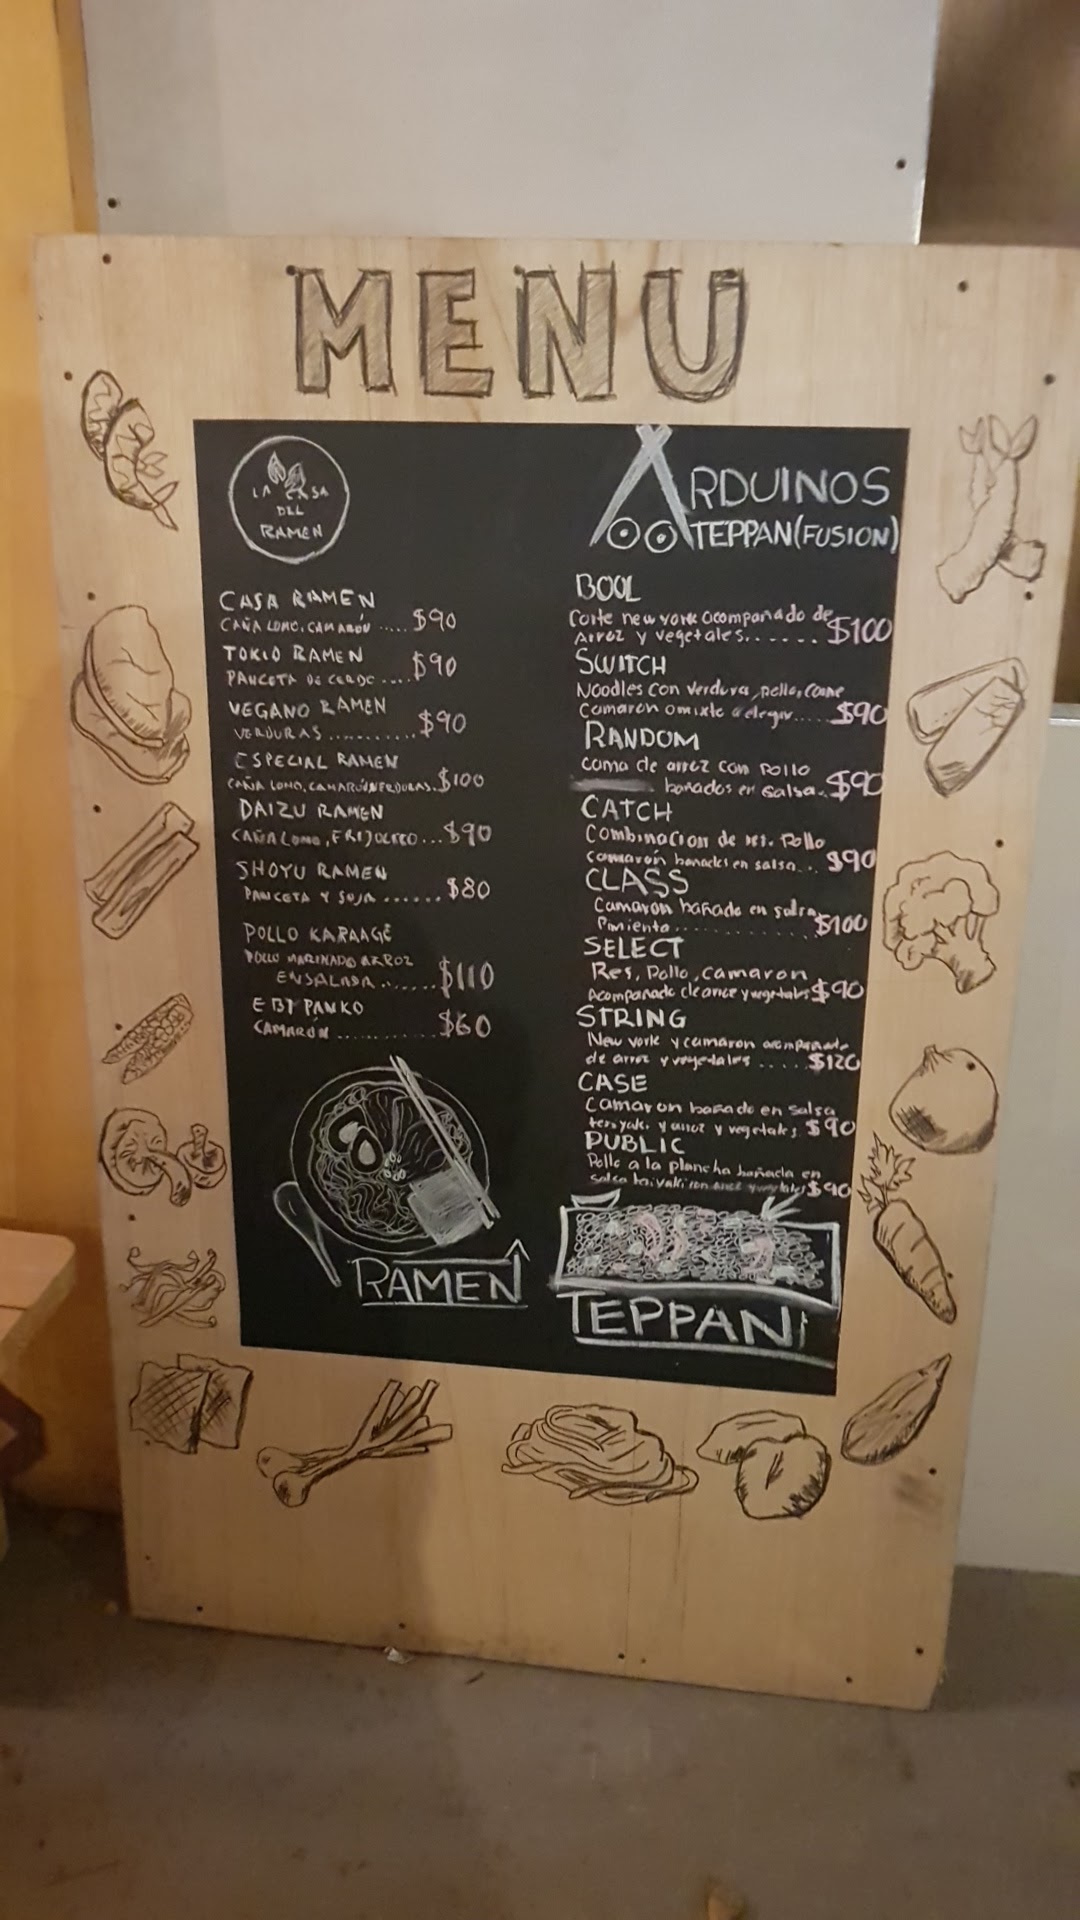 MENU
LA CASA
DEL
RAMEN
CASA RAMEN
CAÑA LOMO, CAMARÓN ..... $90
TOKIO RAMEN
PANCETA DE CERDO .... $90
VEGANO RAMEN
VERDURAS .......... $90
ESPECIAL RAMEN
CAÑA LOMO, CAMARÓN, VERDURAS. $100
DAIZU RAMEN
CAÑA LOMO, FRIJOL ... $90
SHOYU RAMEN
PANCETA Y SOJA ...... $80
POLLO KARAAGE
POLLO MARINADO ARROZ
ENSALADA ...... $110
EBI PANKO
CAMARÓN ........... $60
RAMEN
ARDUINOS
TEPPAN(FUSION)
BOOL
Corte new york acompañado de
Arroz y vegetales....... $100
SWITCH
Noodles con verdura, pollo, carne
Camaron o mixto a elegir..... $90
RANDOM
cama de arroz con pollo
bañados en salsa.. $90
CATCH
Combinacion de res, pollo
camarón bañados en salsa... $90
CLASS
Camaron bañado en salsa
Pimienta............. $100
SELECT
Res, Pollo, camaron
Acompañado de arroz y vegetales $90
STRING
New york y camaron acompañado
de arroz y vegetales ..... $120
CASE
Camaron bañado en salsa
teriyaki y arroz y vegetales $90
PUBLIC
Pollo a la plancha bañada en
salsa con arroz y vegetales $90
TEPPAN